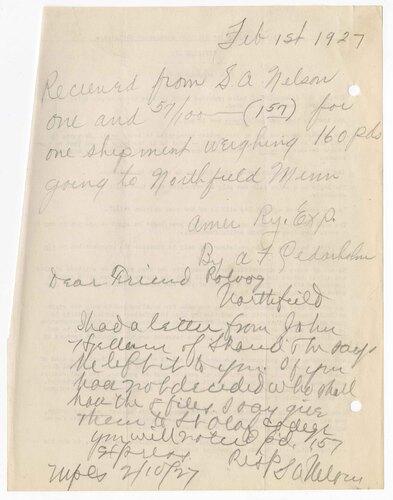 Feb 1st 1927
Recieved from S. A. Nelson
one and 57/100 — (157) for
one shipment weighing 160 pds
going to Northfield Minn
Amer Ry. Exp.
By A F Cedarholm
Dear Friend Rolvog
Northfield
I had a letter from John
of he says
he left it to you. If you
had not decided who shall
have the files I say give
them to St Olaf
you will I Pd. 157
Express Resp
Mpls 2/10/27 S A Nelson